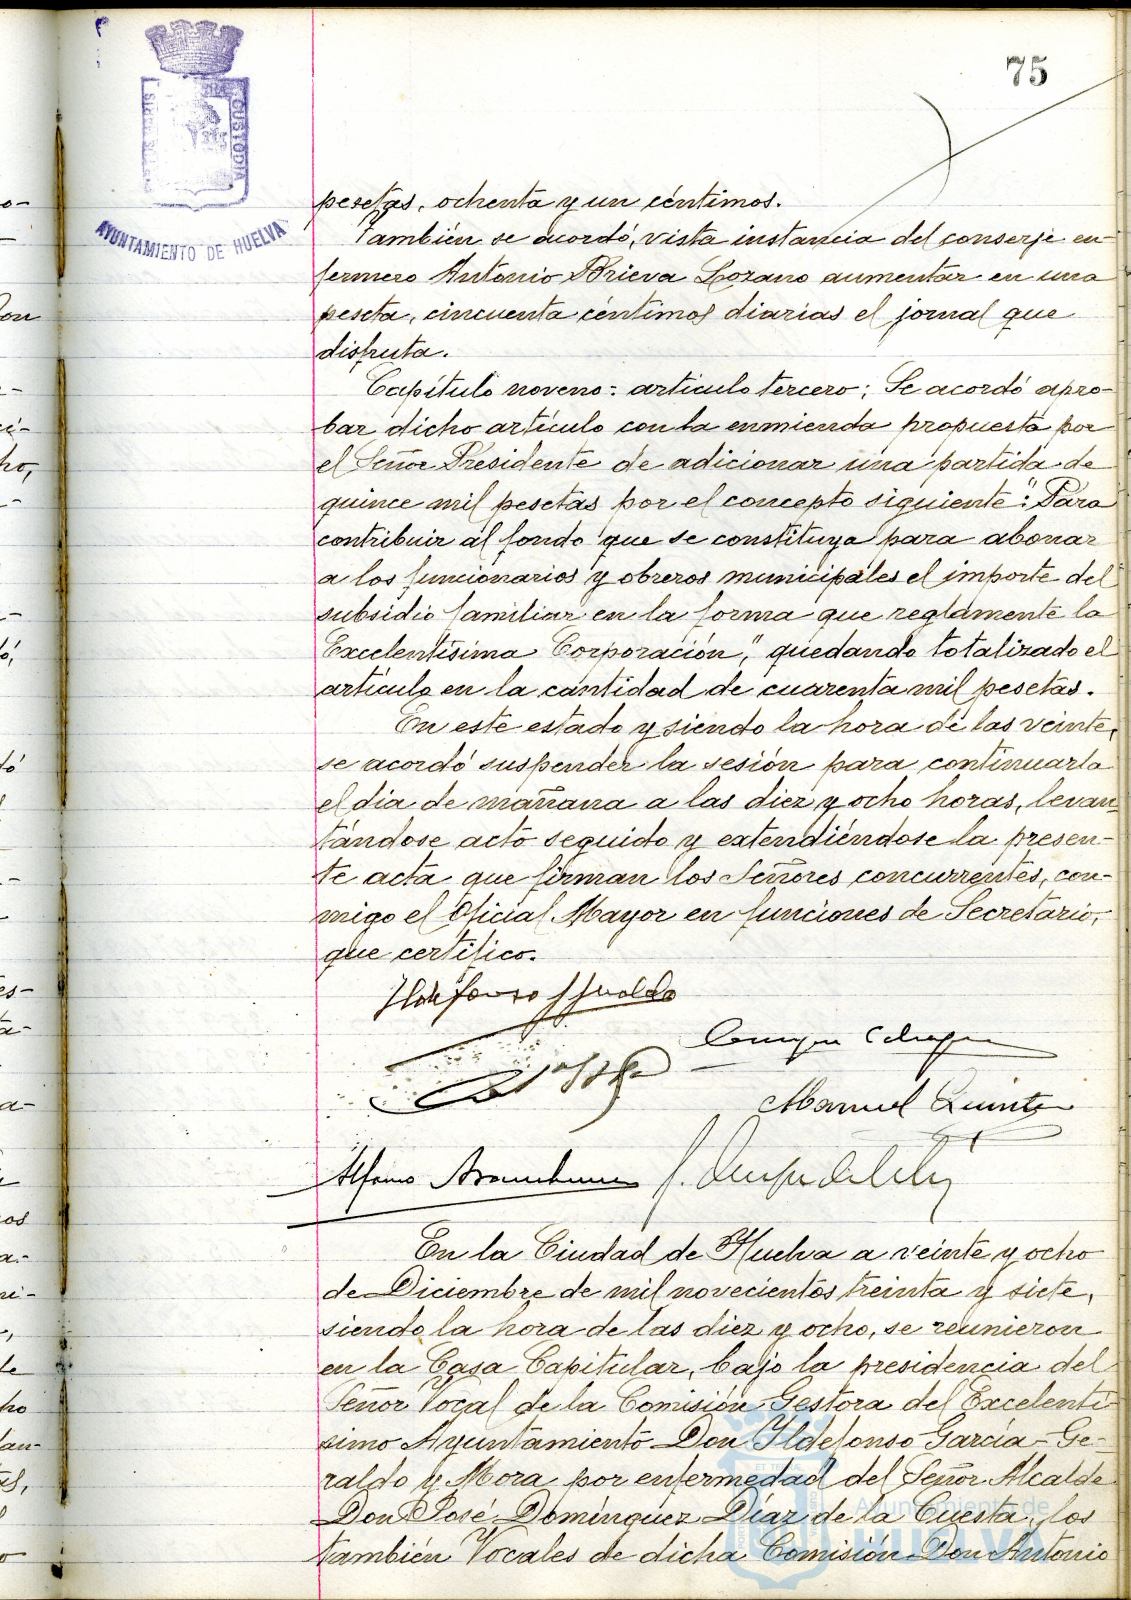 75
CUSTODIA
AYUNTAMIENTO DE HUELVA
pesetas, ochenta y un céntimos.
También se acordó, vista instancia del conserje en-
fermero Antonio Brieva Lozano aumentar en una
peseta, cincuenta céntimos diarias el jornal que
disfruta.
Capítulo noveno: artículo tercero; Se acordó apro-
bar dicho artículo con la enmienda propuesta por
el Señor Presidente de adicionar una partida de
quince mil pesetas por el concepto siguiente: "Para
contribuir al fondo que se constituya para abonar
a los funcionarios y obreros municipales el importe del
subsidio familiar en la forma que reglamente la
Excelentísima Corporación", quedando totalizado el
artículo en la cantidad de cuarenta mil pesetas.
En este estado y siendo la hora de las veinte,
se acordó suspender la sesión para continuarla
el día de mañana a las diez y ocho horas, levan-
tándose acto seguido y extendiéndose la presen-
te acta que firman los Señores concurrentes, con-
migo el Oficial Mayor en funciones de Secretario,
que certifico.
Manuel
Alfonso
En la Ciudad de Huelva a veinte y ocho
de Diciembre de mil novecientos treinta y siete,
siendo la hora de las diez y ocho, se reunieron
en la Casa Capitular, bajo la presidencia del
Señor Vocal de la Comisión Gestora del Excelentí-
simo Ayuntamiento Don Ildefonso García-Ge-
raldo y Mora por enfermedad del Señor Alcalde
Don José Domínguez Díaz de la Cuesta, los
también Vocales de dicha Comisión Don Antonio
Ayuntamiento de
HUELVA